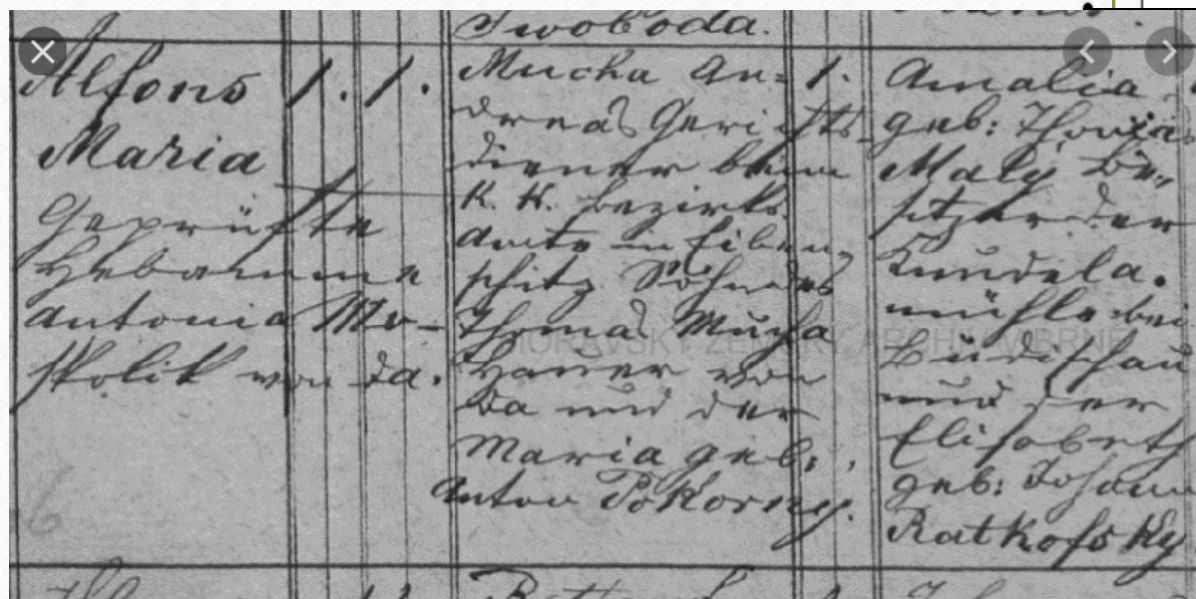 Swoboda.
Alfons
Maria
Geprüfte
Hebamme
Antonia Mo-
spolik von da.
1. 1.
Mucha An=
dreas Gerichts-
diener beim
K. K. Bezirks
Amte in Eiben-
schitz Sohn des
Thomas Mucha
Hauer von
da und der
Maria geb:
Anton Pokorny.
1.
Amalia
geb: Thomas
Maly Be-
sitzer der
Kundela.
mühle bei
Budischau
und der
Elisabeth
geb: Johann
Ratkofsky
MORAVSKÝ ZEMSKÝ ARCHIV V BRNĚ